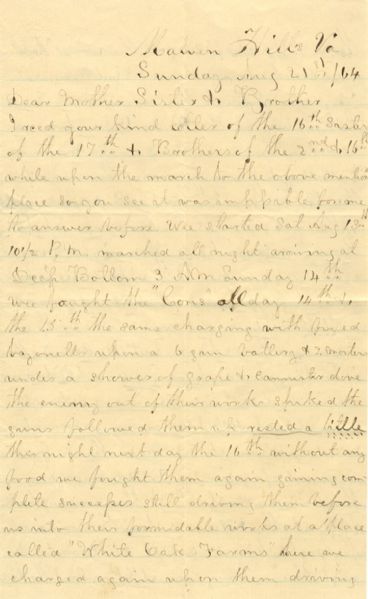 Malvern Hill Va
Sunday Aug 21st/64
Dear Mother Sister & Brother
I recd your kind letter of the 16th Sisters
of the 17th & Brothers of the 2nd & 16th
while upon the march to the above mention
place so you see it was impossible for me
to answer before We started Sat Aug 13th
10 1/2 P.M. marched all night arriving at
Deep Bottom 3 AM Sunday 14th
We fought the "Cons" all day 14th &
the 15th the same charging with fixed
bayonetts upon a 6 gun battery & 2 mortars
under a shower of grape & cannister drove
the enemy out of their works spiked the
guns followed them rested a little
this night next day the 16th without any
food we fought them again gaining com
plete success still driving them before
us into their formidable works at a place
called "White Oak Farms" here we
charged again upon them driving